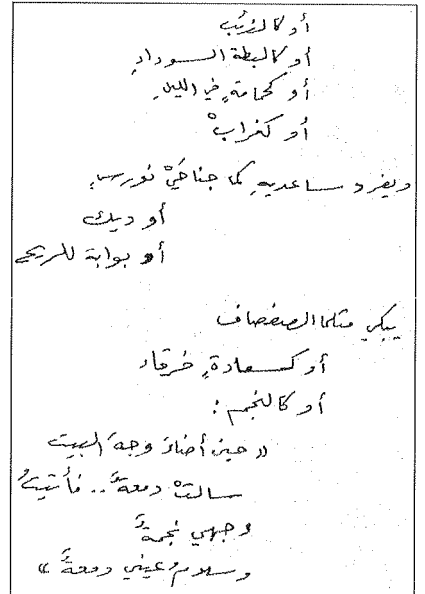 أو كالذئب
أو كالبطة السوداءِ
أو كحمامةٍ في الليلِ
أو كغرابْ
ويفرد ساعديهِ كما جناحَيْ نورسٍ
أو ديك
أو بوابة للريح
يبكي مثلما الصفصاف
أو كسعادةٍ خرقاء
أو كالنجم :
« حين أضاءَ وجهَ البيت
سالتْ دمعةٌ .. فأتيتُ
وجهي نجمةٌ
وسلام وعيني دمعةٌ »